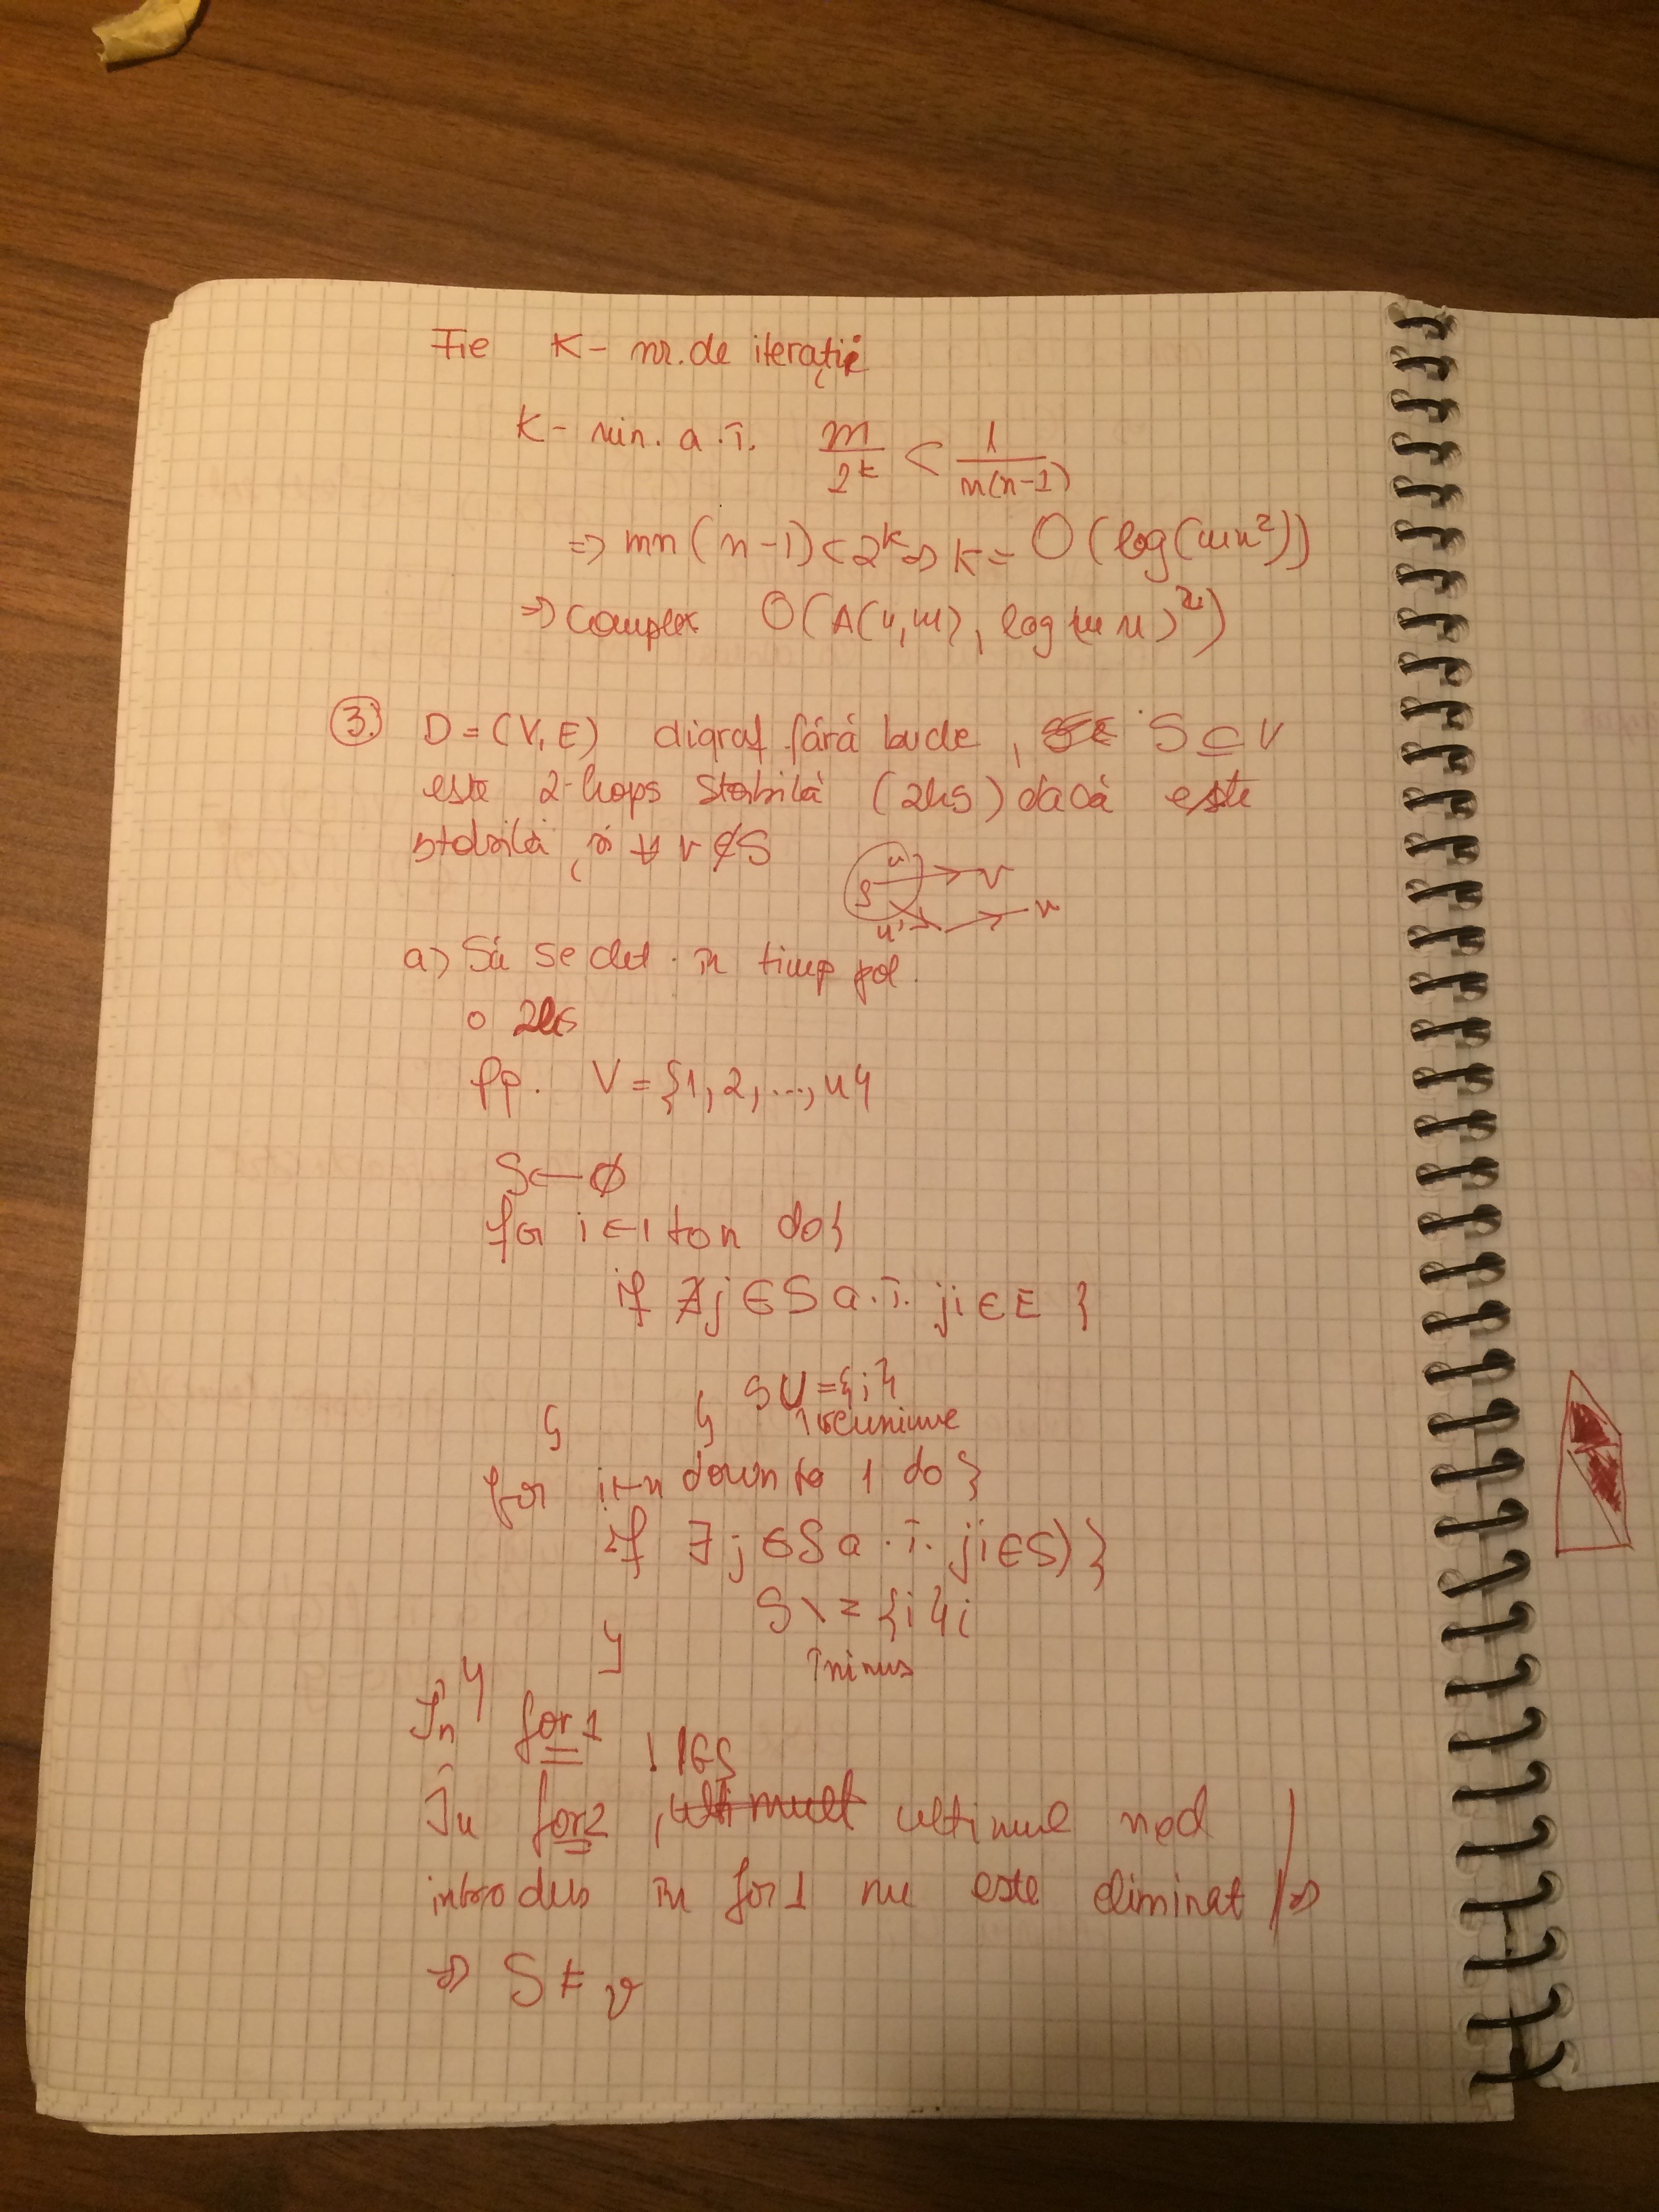 Fie K - nr. de iterații
K - min. a.î. m/2^k < 1/n(n-1)
⇒ mn(n-1) < 2^k ⇒ K = O(log(mn²))
⇒ Complex O(A(n,m), log(m n)²)
3. D = (V, E) digraf fără bucle, S ⊆ V
este 2-hops stabilă (2hs) dacă este
stabilă și ∀ v ∉ S
u → v
S
u' → → v
a) Să se det. în timp pol.
o 2hs
Pp. V = {1, 2, ..., n}
S ← ∅
for i ← 1 to n do {
if ∄ j ∈ S a.î. ji ∈ E {
S ∪= {i}
} } ↑ reuniune
for i ← n down to 1 do {
if ∃ j ∈ S a.î. ji ∈ S) {
S \= {i};
} ↑ minus
}
În for 1
! 1 ∈ S
În for 2, ultimul nod
introdus în for 1 nu este eliminat | ⇒
⇒ S ≠